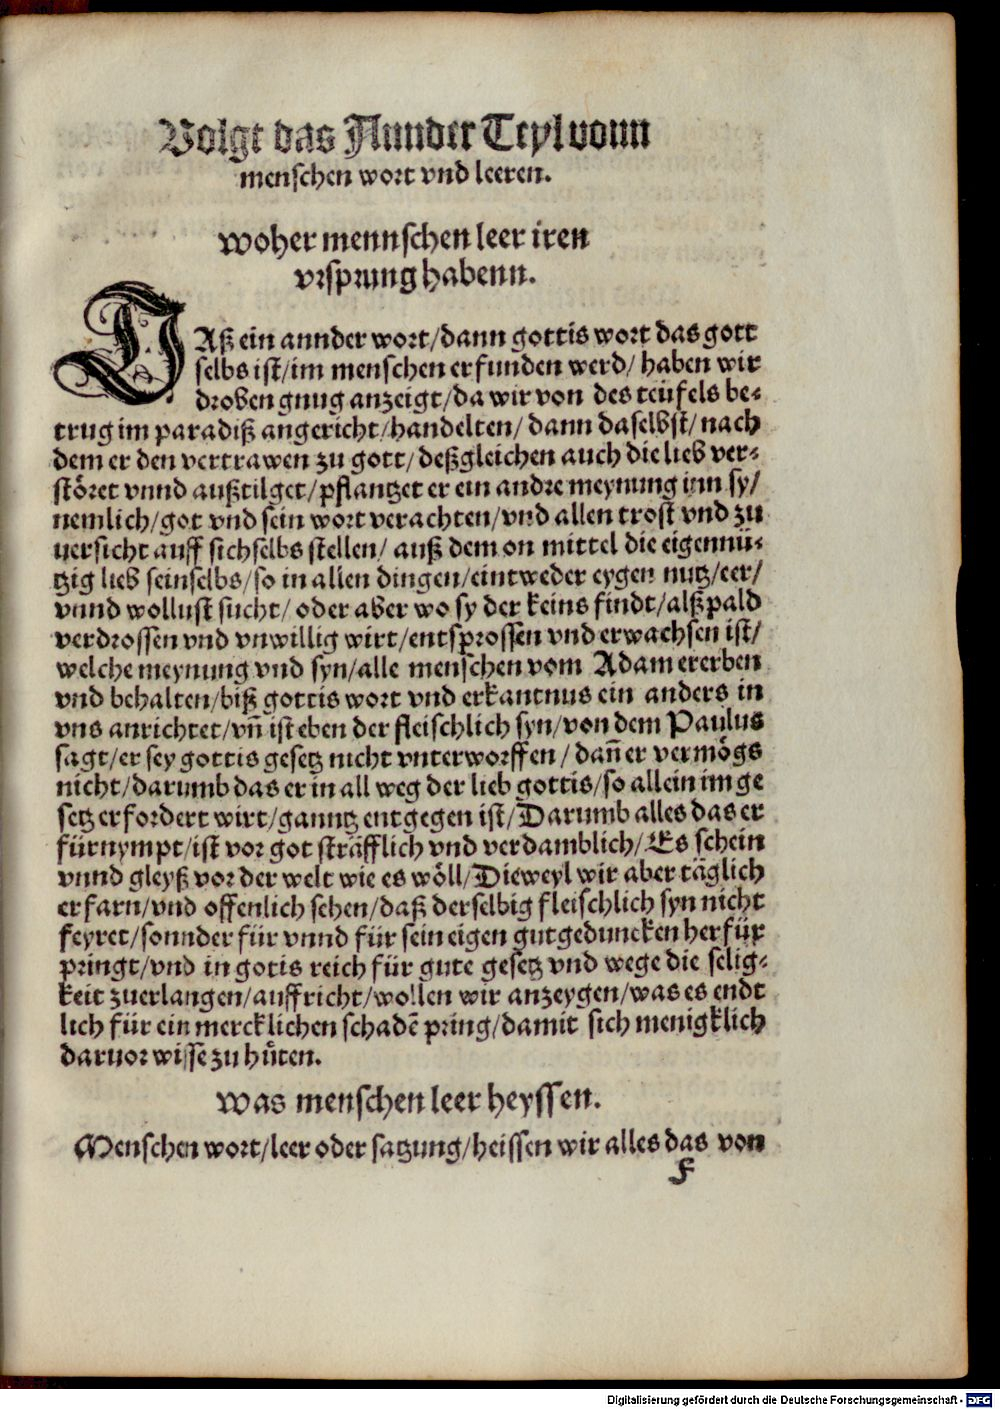 Volgt das Annder Teyl vonn
menschen wort vnd leeren.
woher mennschen leer iren
vrsprung habenn.
DAß ein annder wort/dann gottis wort das gott
selbs ist/im menschen erfunden werd/ haben wir
droben gnug anzeigt/da wir von des teüfels be⸗
trug im paradiß angericht/handelten/ dann daselbst/ nach
dem er den vertrawen zu gott/ deßgleichen auch die lieb ver⸗
störet vnnd außtilget/pflantzet er ein andre meynung inn sy/
nemlich/got vnd sein wort verachten/vnd allen trost vnd zu
uersicht auff sichselbs stellen/ auß dem on mittel die eigennü⸗
tzig lieb seinselbs/so in allen dingen/eintweder eygen nutz/eer/
vnnd wollust sucht/ oder aber wo sy der keins findt/alß pald
verdrossen vnd vnwillig wirt/entsprossen vnd erwachsen ist/
welche meynung vnd syn/alle menschen vom Adam ererben
vnd behalten/biß gottis wort vnd erkantnus ein anders in
vns anrichtet/vn̄ ist eben der fleischlich syn/von dem Paulus
sagt/er sey gottis gesetz nicht vnterworffen/ dan̄ er vermögs
nicht/darumb das er in all weg der lieb gottis/so allein im ge
setz erfordert wirt/ganntz entgegen ist/Darumb alles das er
fürnympt/ist vor got sträfflich vnd verdamblich/Es schein
vnnd gleyß vor der welt wie es wöll/Dieweyl wir aber täglich
erfarn/vnd offenlich sehen/daß derselbig fleischlich syn nicht
feyret/sonnder für vnnd für sein eigen gutgeduncken herfür
pringt/vnd in gotis reich für gute gesetz vnd wege die selig⸗
keit zuerlangen/auffricht/wollen wir anzeygen/was es endt
lich für ein mercklichen schadē pring/damit sich menigklich
daruor wisse zu hüten.
Was menschen leer heyssen.
Menschen wort/leer oder satzung/heissen wir alles das von
F
Digitalisierung gefördert durch die Deutsche Forschungsgemeinschaft - DFG